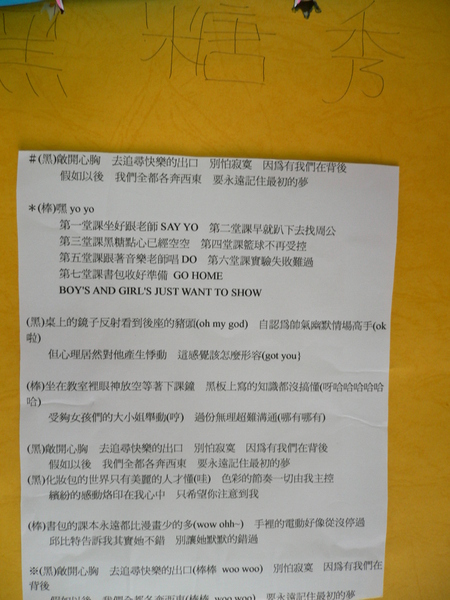 黑糖秀
#(黑)敞開心胸 去追尋快樂的出口 別怕寂寞 因為有我們在背後
假如以後 我們全都各奔西東 要永遠記住最初的夢
*(棒)嘿 yo yo
第一堂課坐好跟老師 SAY YO 第二堂課早就趴下去找周公
第三堂課黑糖點心已經空空 第四堂課籃球不再受控
第五堂課跟著音樂老師唱 DO 第六堂課實驗失敗難過
第七堂課書包收好準備 GO HOME
BOY'S AND GIRL'S JUST WANT TO SHOW
(黑)桌上的鏡子反射看到後座的豬頭(oh my god) 自認為帥氣幽默情場高手(ok
啦)
但心理居然對他產生悸動 這感覺該怎麼形容(got you}
(棒)坐在教室裡眼神放空等著下課鐘 黑板上寫的知識都沒搞懂(呀哈哈哈哈哈
哈)
受夠女孩們的大小姐舉動(哼) 過份無理超難溝通(哪有哪有)
(黑)敞開心胸 去追尋快樂的出口 別怕寂寞 因為有我們在背後
假如以後 我們全都各奔西東 要永遠記住最初的夢
(黑)化妝包的世界只有美麗的人才懂(哇) 色彩的節奏一切由我主控
繽紛的感動烙印在我心中 只希望你注意到我
(棒)書包的課本永遠都比漫畫少的多(wow ohh~) 手裡的電動好像從沒停過
邱比特告訴我其實她不錯 別讓她默默的錯過
※(黑)敞開心胸 去追尋快樂的出口(棒棒 woo woo) 別怕寂寞 因為有我們在
背後
假如以後 我們全都各奔西東(棒棒 woo woo) 要永遠記住最初的夢